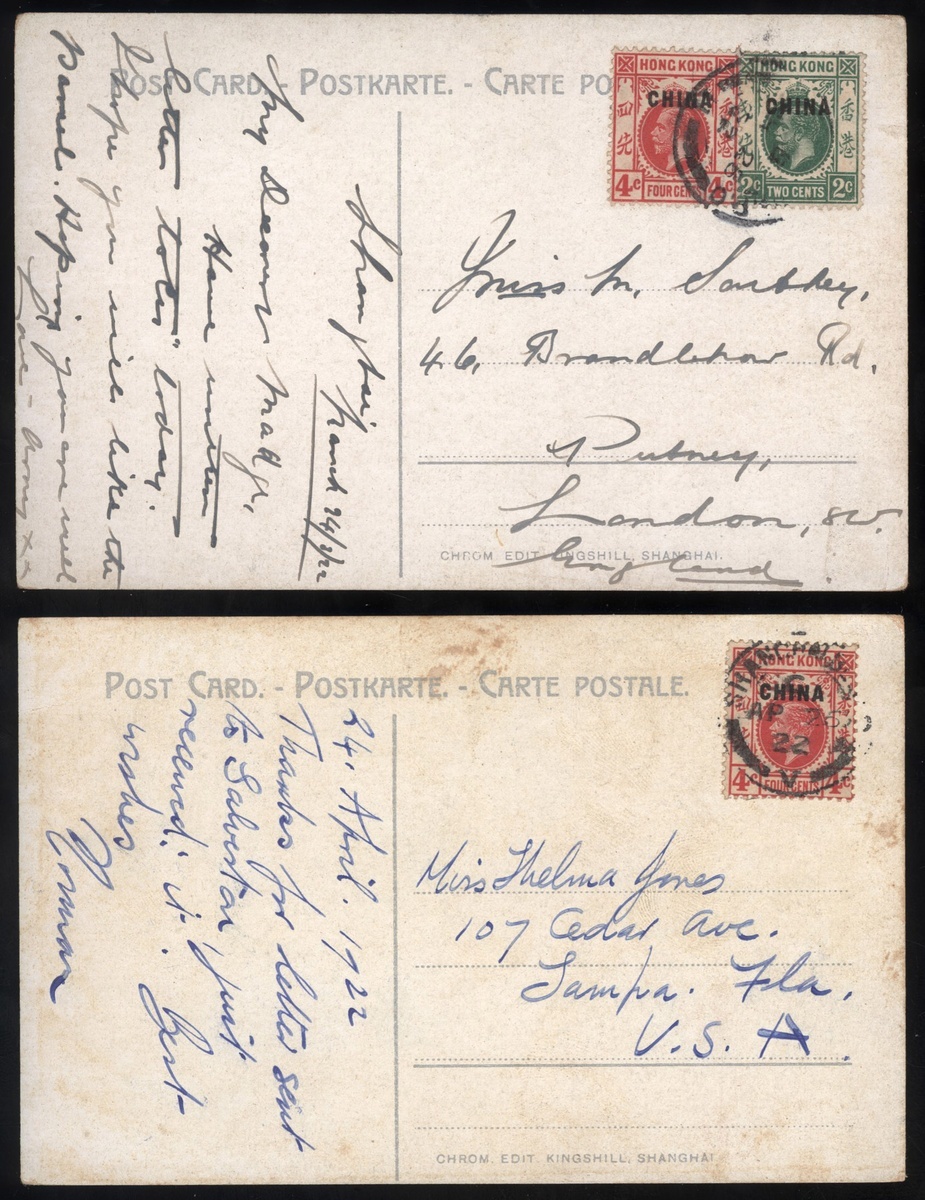 POST CARD. - POSTKARTE. - CARTE PO
HONG KONG
CHINA
四
香港
4c FOUR CEN 4c
HONG KONG
CHINA
香港
2c TWO CENTS 2c
Shanghai,
March 24/3/22
My Dearest Madge,
Have written
letter today.
I hope you will like the
Hoping you are well
Love -
x x
Miss M.
46, Rd.
Putney,
London, SW.
England.
CHROM. EDIT. KINGSHILL, SHANGHAI.
POST CARD. - POSTKARTE. - CARTE POSTALE.
HONG KONG
CHINA
4c FOUR CENTS 4c
SHANGHAI
AP 26
22
V
24. April. 1922
Thanks for letter sent
to Galveston just
received it. Best
wishes
Norman
Miss Thelma Jones
107 Cedar Ave.
Tampa. Fla.
U. S. A.
CHROM. EDIT. KINGSHILL, SHANGHAI